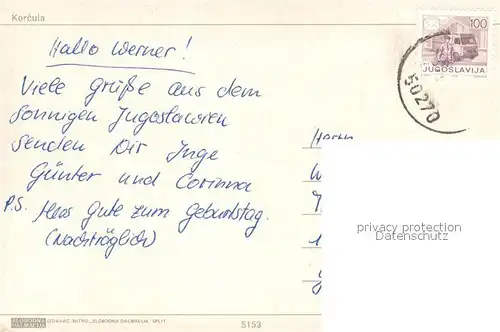 Korčula
100
JUGOSLAVIJA
50270
Hallo Werner!
Viele Grüße aus dem
sonnigen Jugoslawien
senden Dir Inge
Günter und Corinna
P.S. Alles gute zum Geburtstag.
(Nachträglich)
Herrn
privacy protection
Datenschutz
SLOBODNA DALMACIJA IZDAVAČ: NITRO „SLOBODNA DALMACIJA" SPLIT
5153